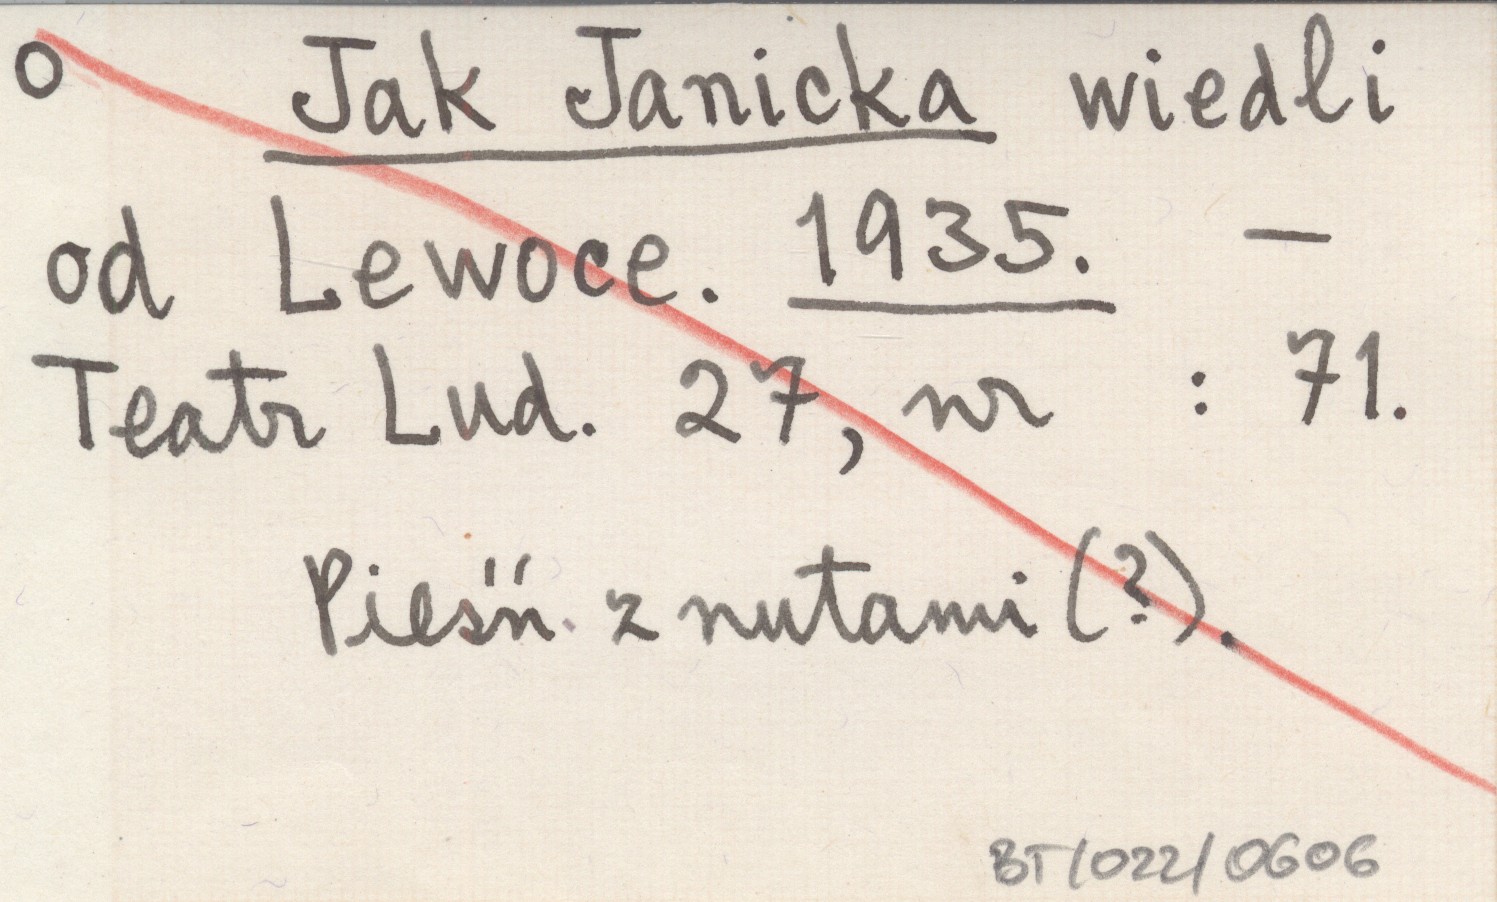 o Jak Janicka wiedli
od Lewoce. 1935. —
Teatr Lud. 27, nr : 71.
Pieśń z nutami (?).
BT/022/0606